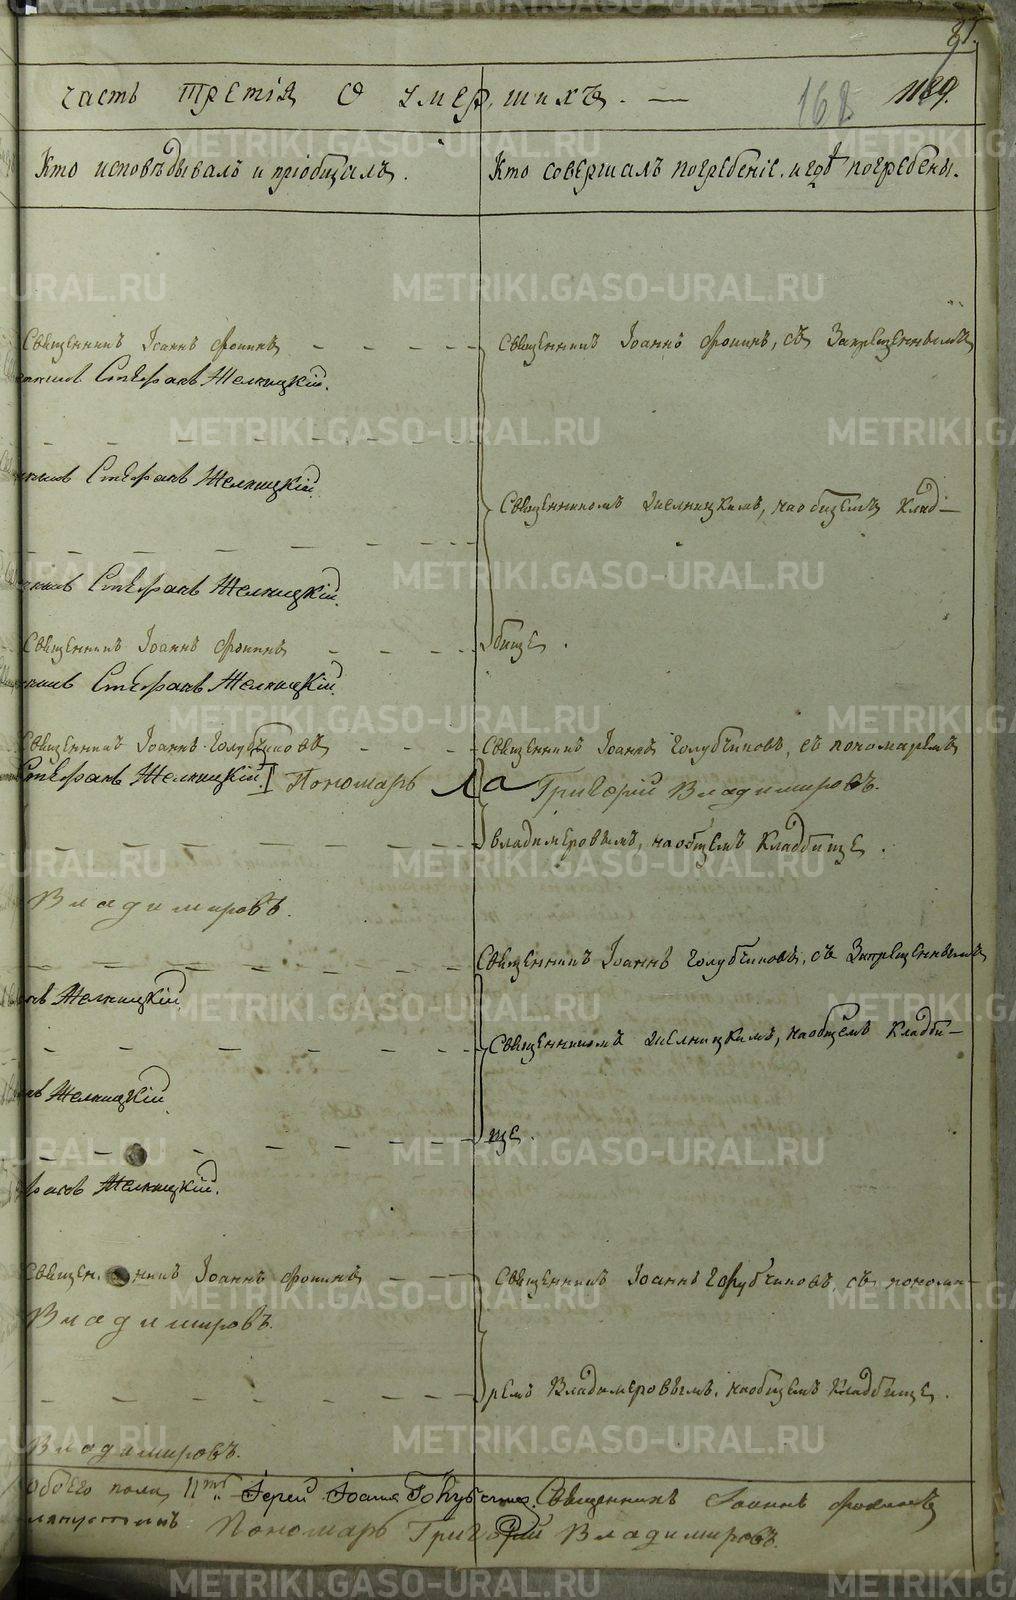 81.
часть третія о умерших. —
168
1189.
Кто исповѣдывалъ и пріобщалъ.
Кто совершалъ погребеніе, и гдѣ погребены.
Священникъ Іоаннъ Фокинъ
Священникъ Іоаннъ Фокинъ, съ Запрещеннымъ
Стефанъ Желницкій.
Стефанъ Желницкій
Священникомъ Желницкимъ, на общемъ клад-
Стефанъ Желницкій.
Священникъ Іоаннъ Фокинъ
бище.
Стефанъ Желницкій.
Священникъ Іоаннъ Голубчиковъ
Священникъ Іоаннъ Голубчиковъ, съ пономаремъ
Стефанъ Желницкій. Пономарь
Григорій Владимировъ.
Владимеровымъ, на общемъ Кладбище.
Владимировъ.
Священникъ Іоаннъ Голубчиковъ, съ Запрещеннымъ
Желницкій
Священникомъ Желницкимъ, на общемъ Кладби-
Желницкій
ще.
Желницкій.
Священникъ Іоаннъ Фокинъ
Священникъ Іоаннъ Голубчиковъ, съ понома-
Владимировъ.
ремъ Владимеровымъ, на общемъ Кладбище.
Владимировъ.
обоего пола 11ть Іерей Іоаннъ Голубчиковъ. Священникъ Іоаннъ Фокинъ
Пономарь Григорій Владимировъ.
METRIKI.GASO-URAL.RU